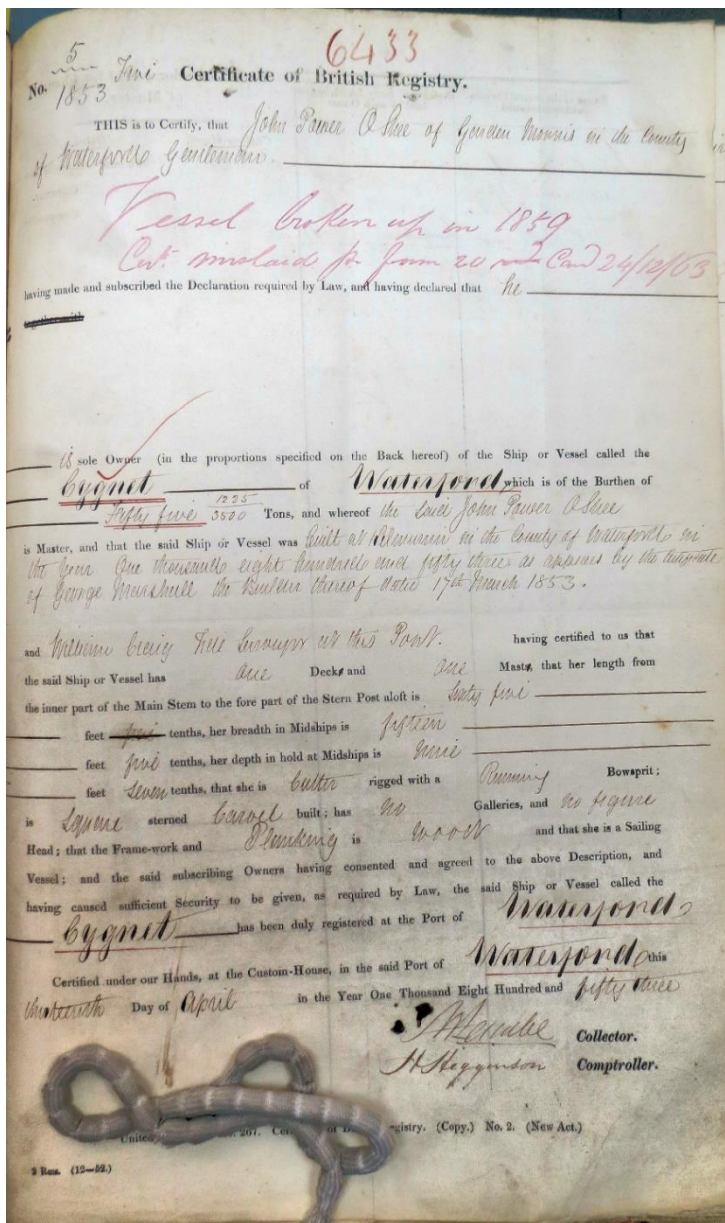 6433
No. 5 1853 Five Certificate of British Registry.
THIS is to Certify, that John Power O'Shee of Garden Morris in the County
of Waterford Gentleman.
Vessel broken up in 1859
Cert. mislaid from 20 24/12/63
having made and subscribed the Declaration required by Law, and having declared that he
together with
is sole Owner (in the proportions specified on the Back hereof) of the Ship or Vessel called the
Cygnet of Waterford, which is of the Burthen of
Fifty five 1235/3500 Tons, and whereof the said John Power O'Shee
is Master, and that the said Ship or Vessel was built at in the County of Waterford in
the year One thousand eight hundred and fifty three as appears by the Certificate
of George Marshall the Builder thereof dated 17th March 1853.
and William Craig Tide Surveyor at this Port. having certified to us that
the said Ship or Vessel has One Deck and One Mast, that her length from
the inner part of the Main Stem to the fore part of the Stern Post aloft is Sixty five
feet five tenths, her breadth in Midships is fifteen
feet five tenths, her depth in hold at Midships is nine
feet seven tenths, that she is Cutter rigged with a Running Bowsprit;
is Square sterned Carvel built; has no Galleries, and no figure
Head; that the Frame-work and Planking is wood and that she is a Sailing
Vessel; and the said subscribing Owners having consented and agreed to the above Description, and
having caused sufficient Security to be given, as required by Law, the said Ship or Vessel called the
Cygnet has been duly registered at the Port of Waterford
Certified under our Hands, at the Custom-House, in the said Port of Waterford this
thirteenth Day of April in the Year One Thousand Eight Hundred and fifty three
Collector.
H Higginson Comptroller.
United No. 267. Registry. (Copy.) No. 2. (New Act.)
2 Rms. (12—52.)